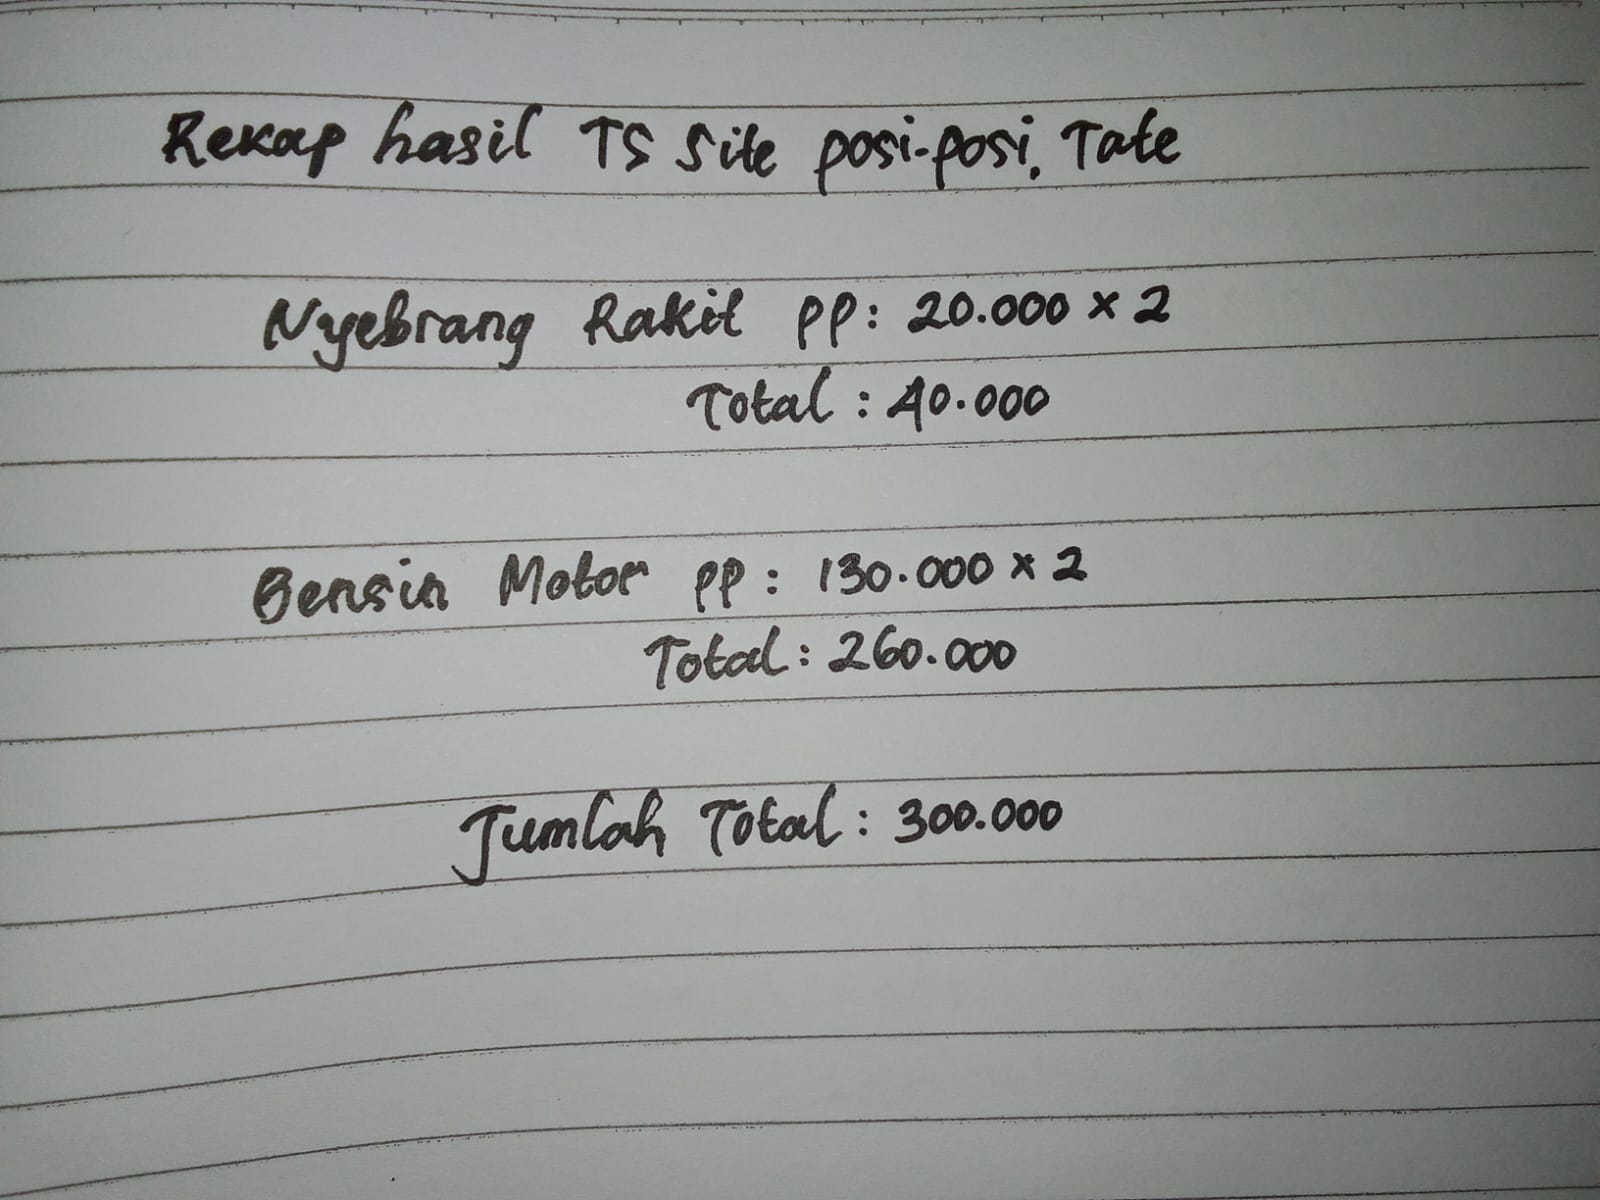 Rekap hasil TS Site posi-posi, Tate
Nyebrang Rakit PP: 20.000 x 2
Total : 40.000
Bensin Motor PP : 130.000 x 2
Total : 260.000
Jumlah Total : 300.000